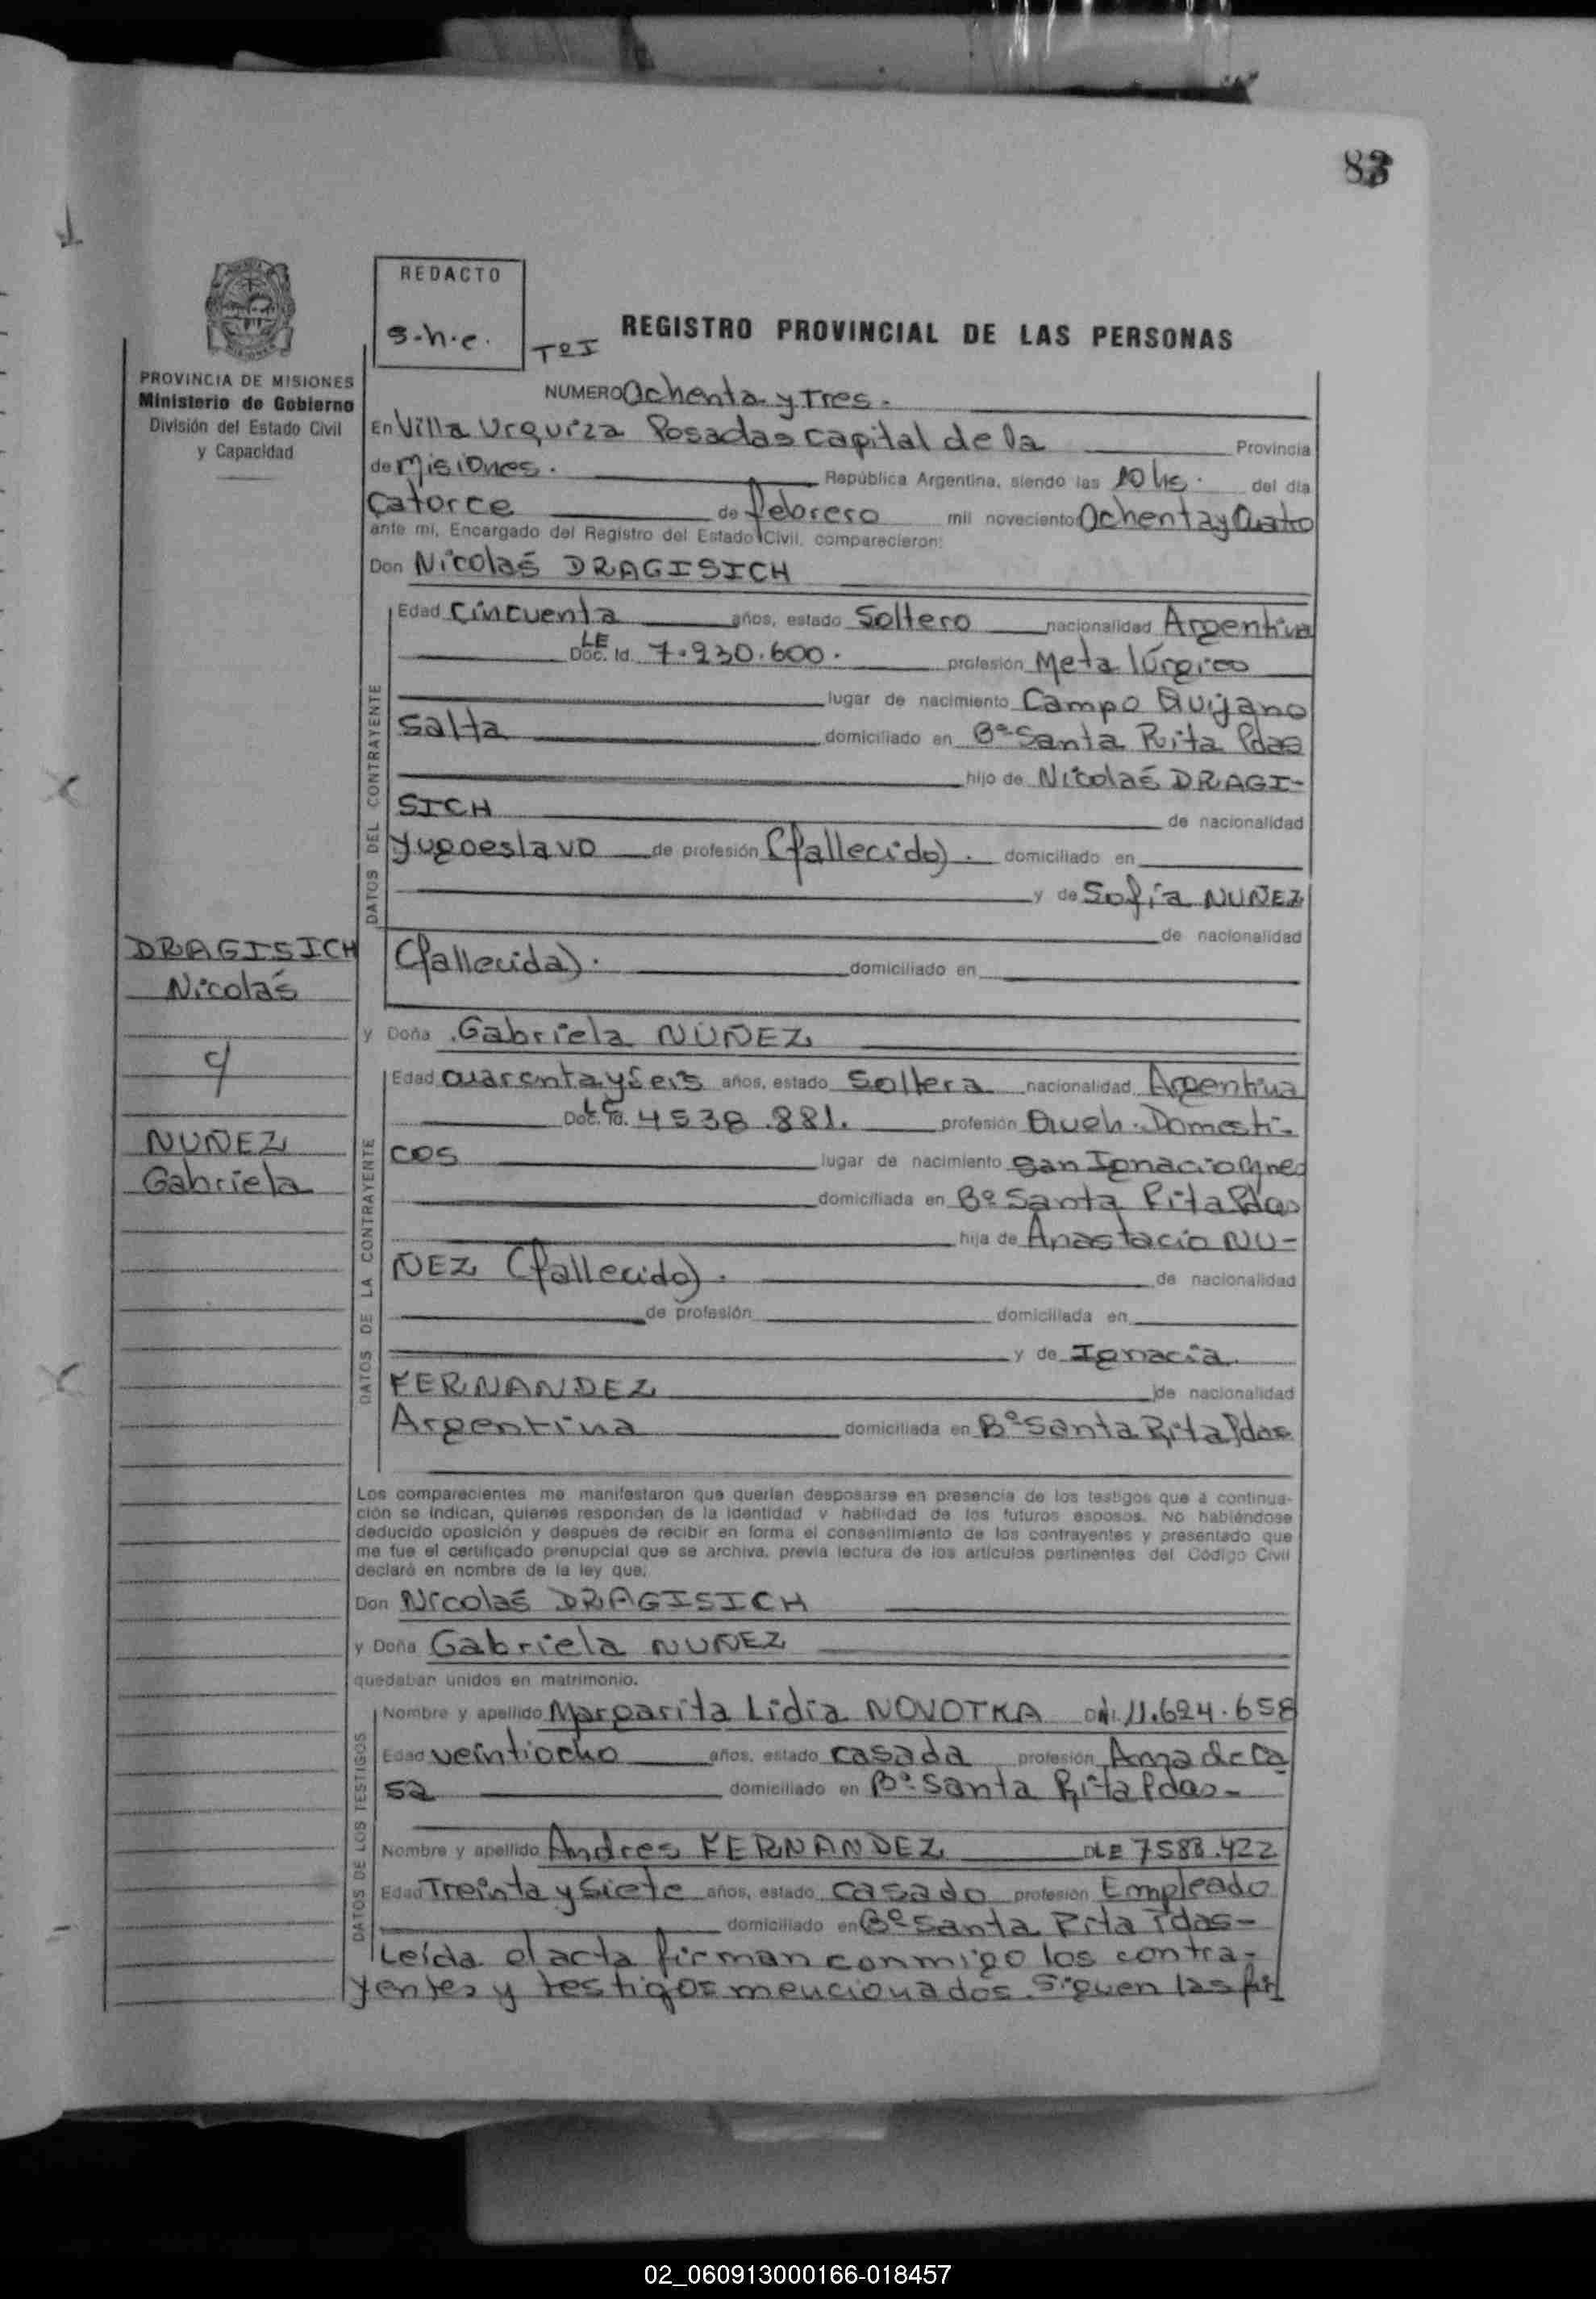 83
REDACTO
s.h.e.
Tº I
REGISTRO PROVINCIAL DE LAS PERSONAS
PROVINCIA DE MISIONES
Ministerio de Gobierno
División del Estado Civil
y Capacidad
NUMERO Ochenta y Tres.
En Villa Urquiza Posadas capital de la Provincia
de Misiones. República Argentina, siendo las 10 hs. del día
Catorce de febrero mil novecientos Ochenta y Cuatro
ante mi, Encargado del Registro del Estado Civil, comparecieron:
Don Nicolás DRAGISICH
DATOS DEL CONTRAYENTE
Edad Cincuenta años, estado Soltero nacionalidad Argentina
LE
Doc. Id. 7.230.600. profesión Metalúrgico
lugar de nacimiento Campo Quijano
Salta domiciliado en Bº Santa Rita Pdas
hijo de Nicolás DRAGI-
SICH de nacionalidad
yugoeslavo de profesión (fallecido). domiciliado en
y de Sofía NUÑEZ
de nacionalidad
(fallecida). domiciliado en
DRAGISICH
Nicolás
c/
NUÑEZ
Gabriela
y Doña Gabriela NUÑEZ
DATOS DE LA CONTRAYENTE
Edad cuarenta y Seis años, estado Soltera nacionalidad Argentina
LC
Doc. Id. 4538.881. profesión Queh. Domesti-
cos lugar de nacimiento San Ignacio Mnes
domiciliada en Bº Santa Rita Pdas
hija de Anastacio NU-
ÑEZ (fallecido). de nacionalidad
de profesión domiciliada en
y de Ignacia
FERNANDEZ de nacionalidad
Argentina domiciliada en Bº Santa Rita Pdas
Los comparecientes me manifestaron que querían desposarse en presencia de los testigos que a continua-
ción se indican, quienes responden de la identidad y habilidad de los futuros esposos. No habiéndose
deducido oposición y después de recibir en forma el consentimiento de los contrayentes y presentado que
me fue el certificado prenupcial que se archiva, previa lectura de los artículos pertinentes del Código Civil
declaré en nombre de la ley que:
Don Nicolás DRAGISICH
y Doña Gabriela NUÑEZ
quedaban unidos en matrimonio.
DATOS DE LOS TESTIGOS
Nombre y apellido Margarita Lidia NOVOTKA DNI. 11.624.658
Edad veintiocho años, estado casada profesión Ama de Ca
sa domiciliado en Bº Santa Rita Pdas-
Nombre y apellido Andres FERNANDEZ DLE 7588.422
Edad Treinta y Siete años, estado casado profesión Empleado
domiciliado en Bº Santa Rita Pdas-
Leída el acta firman conmigo los contra-
yentes y testigos mencionados. Siguen las fir
02_060913000166-018457